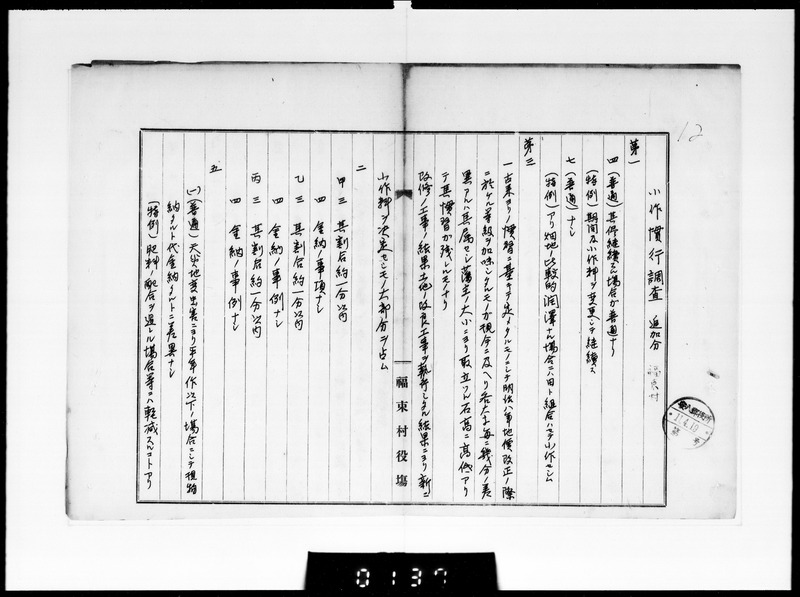 12
小作慣行調査 追加分
福束村
第一
四 (普通) 其侭継続スル場合ガ普通ナリ
(特例) 期間及小作料ヲ変更シテ継続ス
七 (普通) ナシ
(特例) アリ 畑地ノ比較的潤沢ナル場合ニハ田ト組合ハセテ小作セシム
第三
一 古来ヨリノ慣習ニ基キテ定メタルモノニシテ明治八年地価改正ノ際
ニ於ケル等級ヲ加味シタルモノガ現今ニ及ヘリ各大字毎ニ幾分ノ差
異アルハ其属セシ藩主ノ大小ニヨリ取立ツル石高ニ高低アリ
テ其慣習ガ残レルモノナリ
改修ノ工事ノ結果土地ノ改良工事ヲ執行シタル結果ニヨリ新ニ
小作料ヲ決定セシモノ大部分ヲ占ム
二
甲 三 其割合約一分以内
四 金納ノ事項ナシ
乙 三 其割合約一分以内
四 金納ノ事例ナシ
丙 三 其割合約一分以内
四 金納ノ事例ナシ
五
(一) (普通) 天災地変虫害ニヨリ平年作以下ノ場合ニシテ現物
納タルト代金納タルトニ差異ナシ
(特例) 肥料ノ配合ヲ過レル場合等ハ軽減スルコトアリ
福束村役場
11.4.10
0137